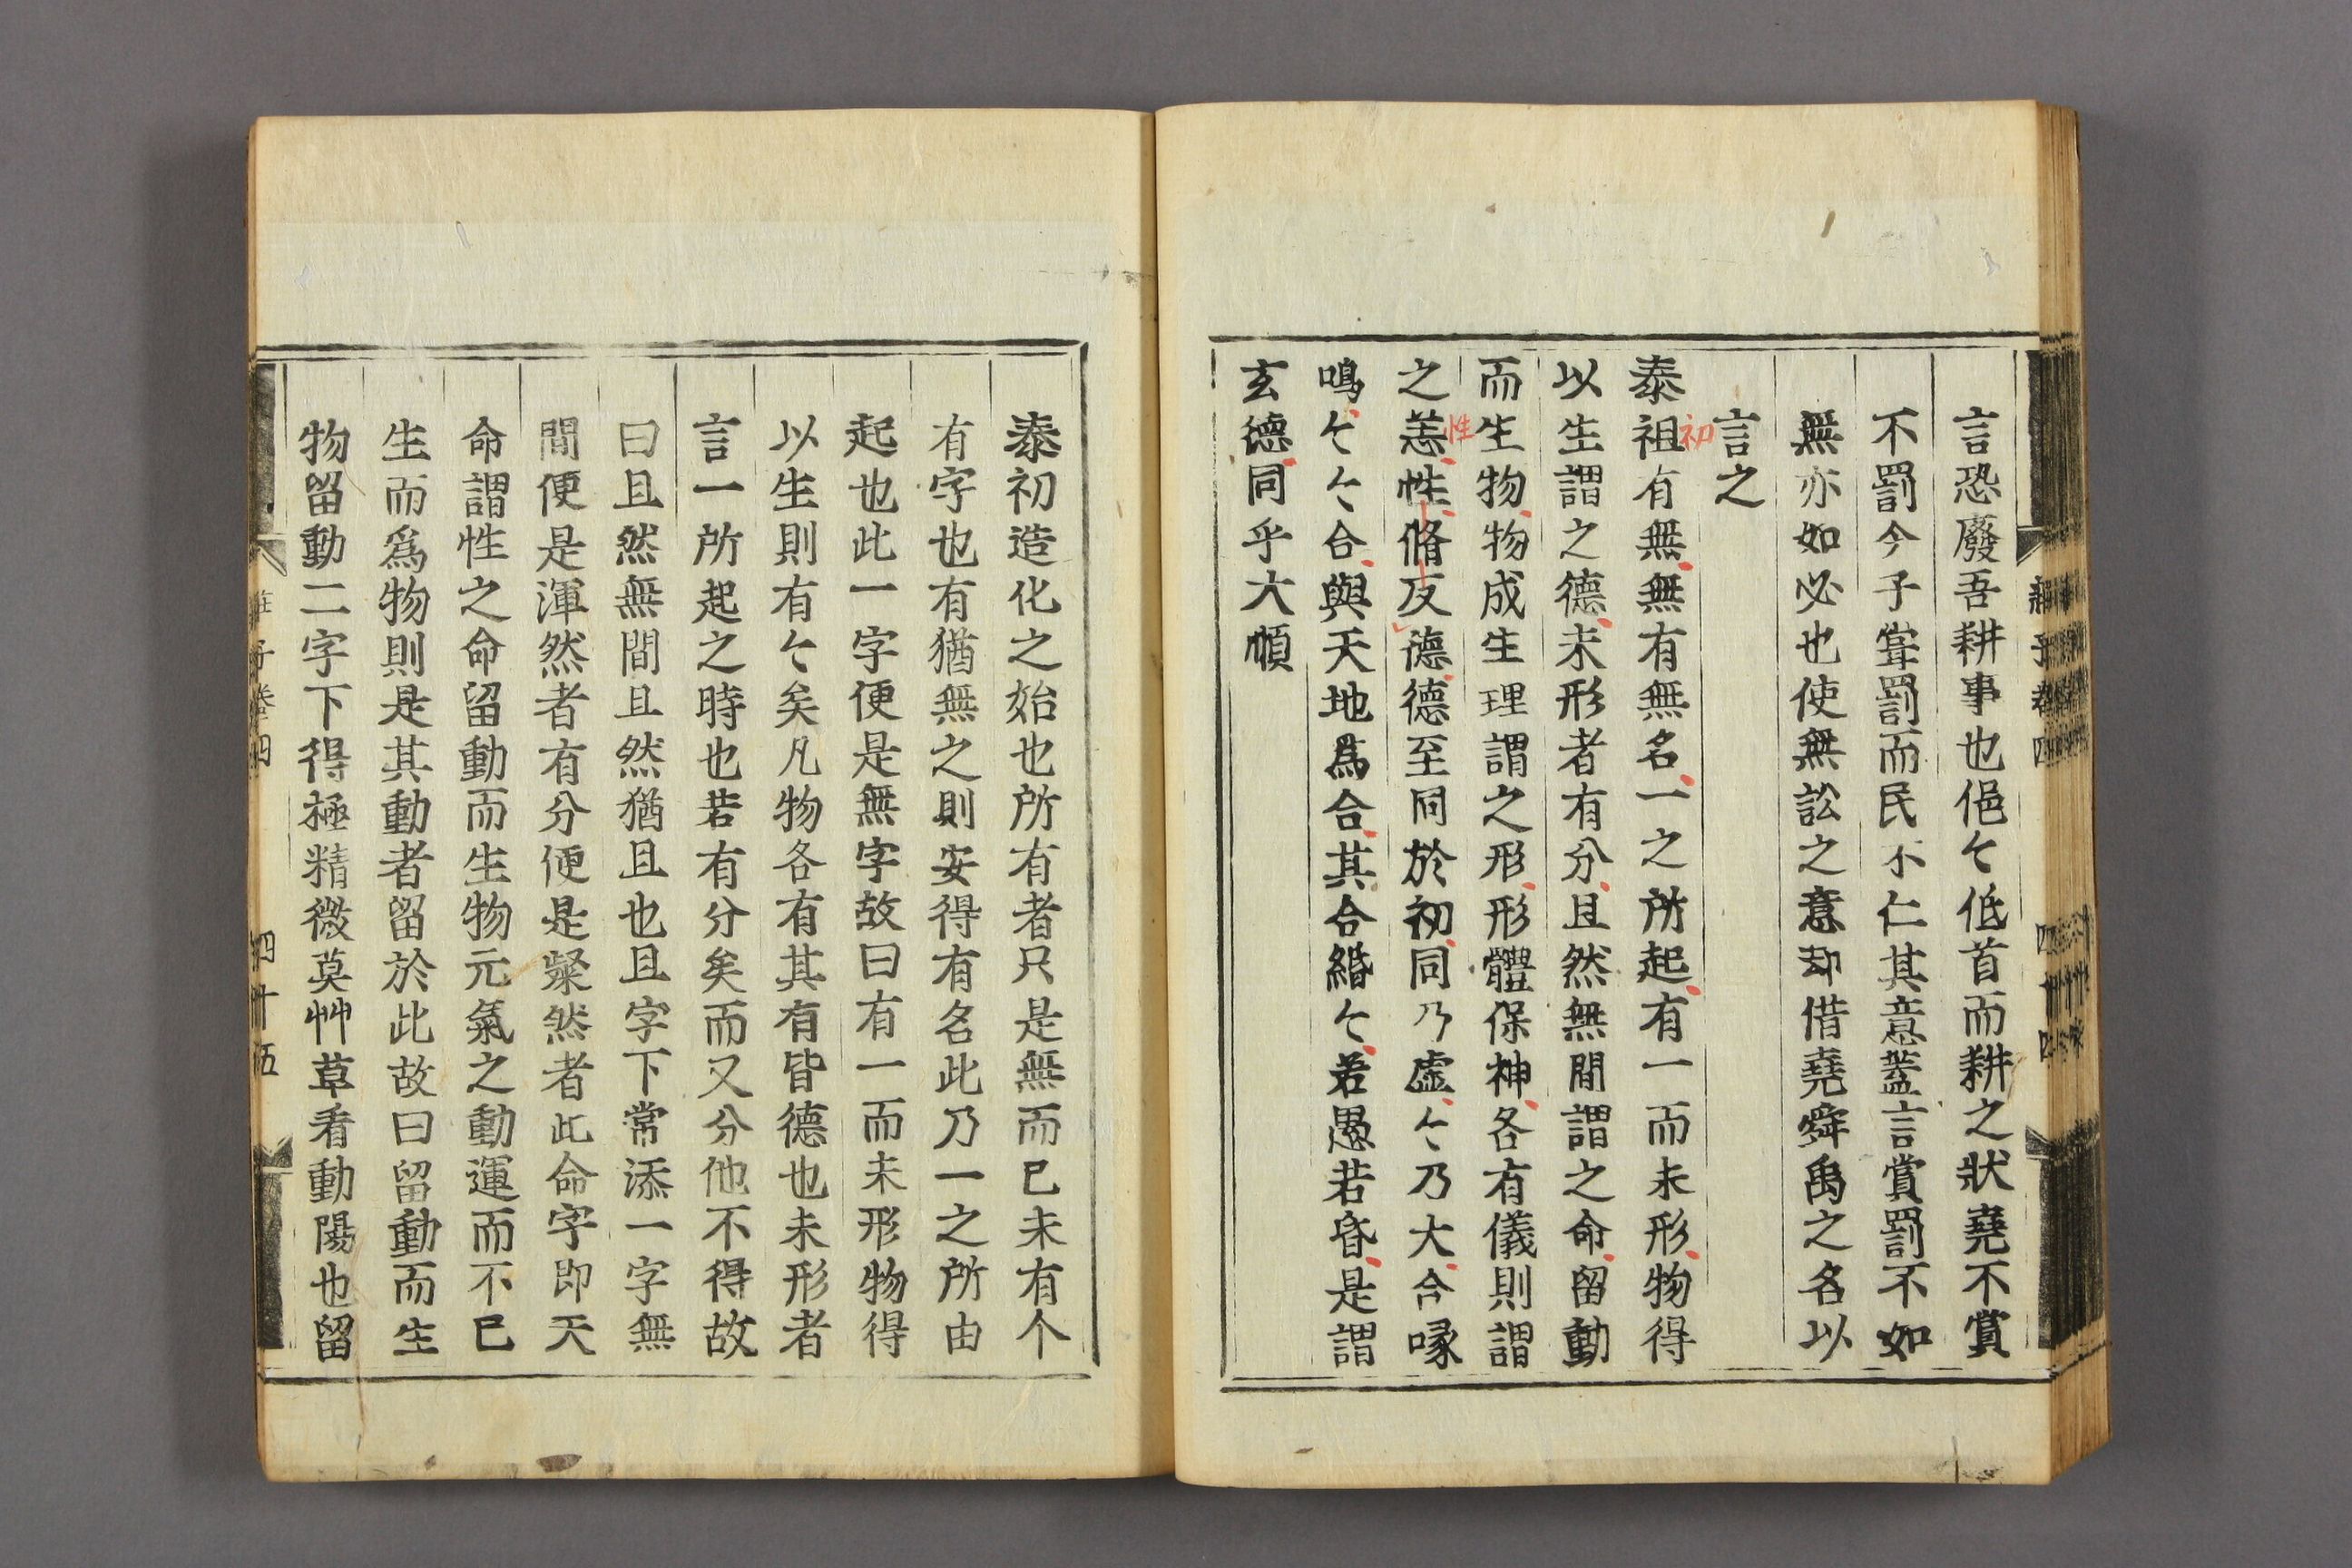 言恐廢吾耕事也俋〻低首而耕之狀堯不賞
不罰今子當罰而民不仁其意蓋言賞罰不如
無亦如必也使無訟之意却借堯舜禹之名以
言之
泰祖有無無有無名一之所起有一而未形物得
初
以生謂之德未形者有分且然無間謂之命留動
而生物物成生理謂之形形體保神各有儀則謂
之恙性脩反德德至同於初同乃虛〻乃大合喙
性
鳴〻〻合與天地爲合其合緡〻若愚若昏是謂
玄德同乎大順
莊子卷四
四十四
泰初造化之始也所有者只是無而已未有个
有字也有猶無之則安得有名此乃一之所由
起也此一字便是無字故曰有一而未形物得
以生則有〻矣凡物各有其有皆德也未形者
言一所起之時也若有分矣而又分他不得故
曰且然無間且然猶且也且字下常添一字無
間便是渾然者有分便是粲然者此命字即天
命謂性之命留動而生物元氣之動運而不已
生而爲物則是其動者留於此故曰留動而生
物留動二字下得極精微莫艸草看動陽也留
莊子卷四
四十五